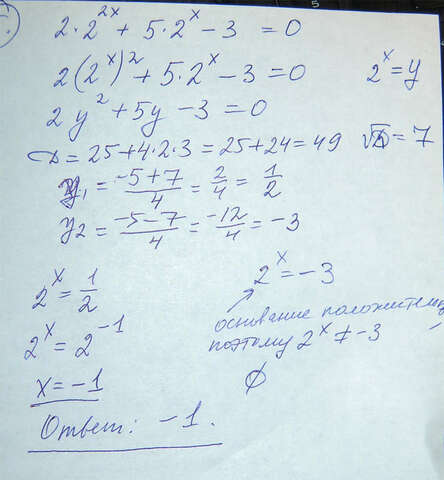 2·2^{2x} + 5·2^x − 3 = 0
2(2^x)^2 + 5·2^x − 3 = 0
2^x = y
2y^2 + 5y − 3 = 0
D = 25+4·2·3 = 25+24 = 49
√D = 7
y_1 = \frac{-5+7}{4} = \frac{2}{4} = \frac{1}{2}
y_2 = \frac{-5-7}{4} = \frac{-12}{4} = -3
2^x = \frac{1}{2}
2^x = 2^{-1}
x = −1
2^x = −3
основание
поэтому 2^x ≠ −3
∅
Ответ: −1.